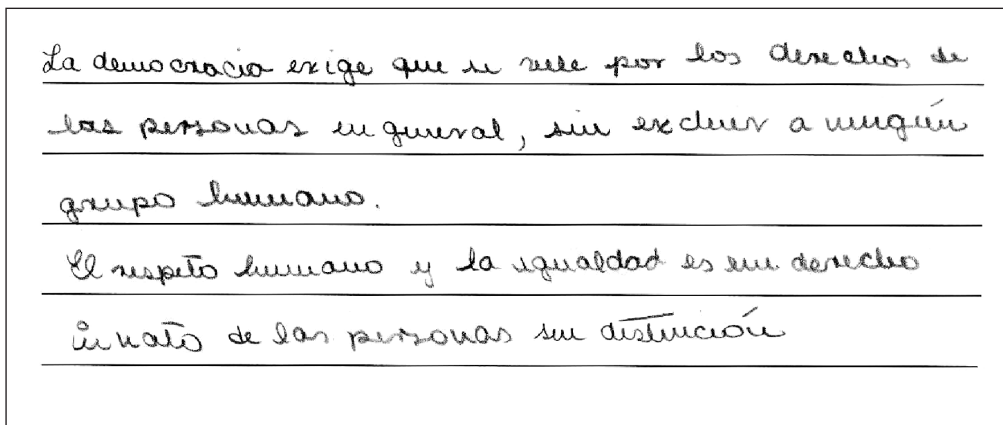 La democracia exige que se vele por los derechos de
las personas en general, sin excluir a ningún
grupo humano.
El respeto humano y la igualdad es un derecho
innato de las personas sin distinción